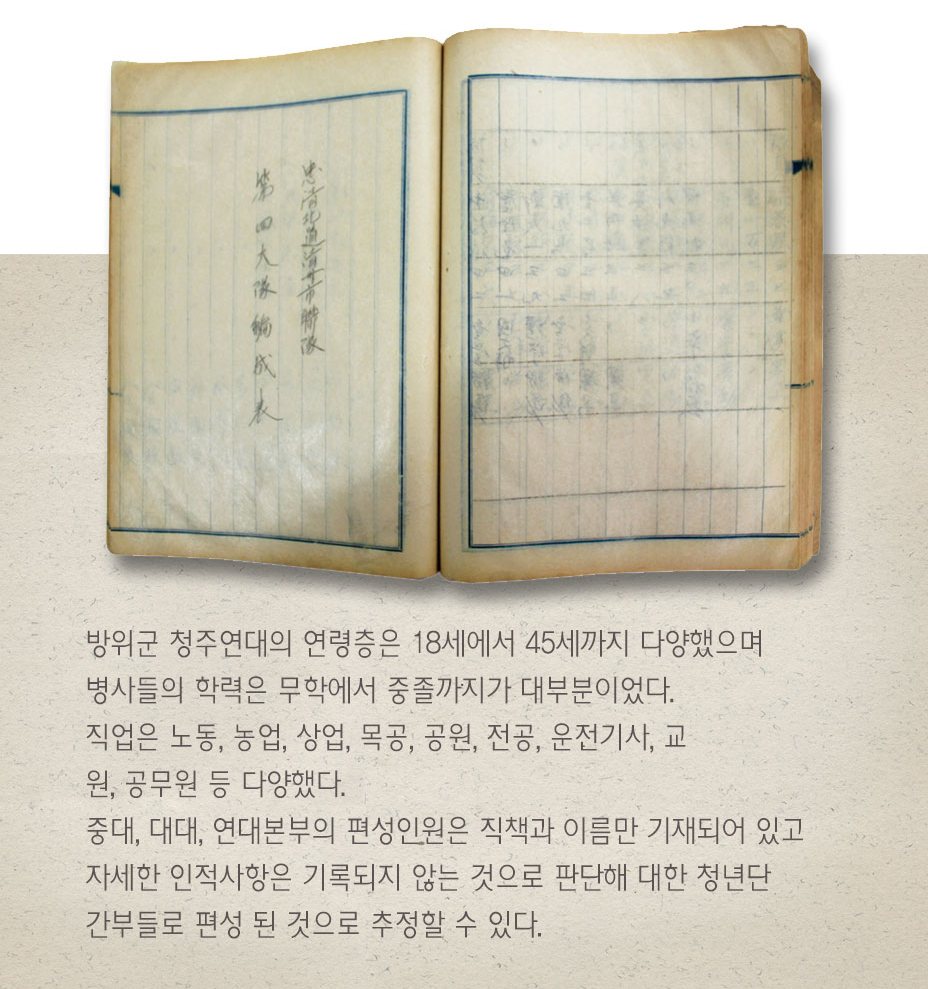 忠淸北道淸州市聯隊
第四大隊編成表
방위군 청주연대의 연령층은 18세에서 45세까지 다양했으며
병사들의 학력은 무학에서 중졸까지가 대부분이었다.
직업은 노동, 농업, 상업, 목공, 공원, 전공, 운전기사, 교
원, 공무원 등 다양했다.
중대, 대대, 연대본부의 편성인원은 직책과 이름만 기재되어 있고
자세한 인적사항은 기록되지 않는 것으로 판단해 대한 청년단
간부들로 편성 된 것으로 추정할 수 있다.